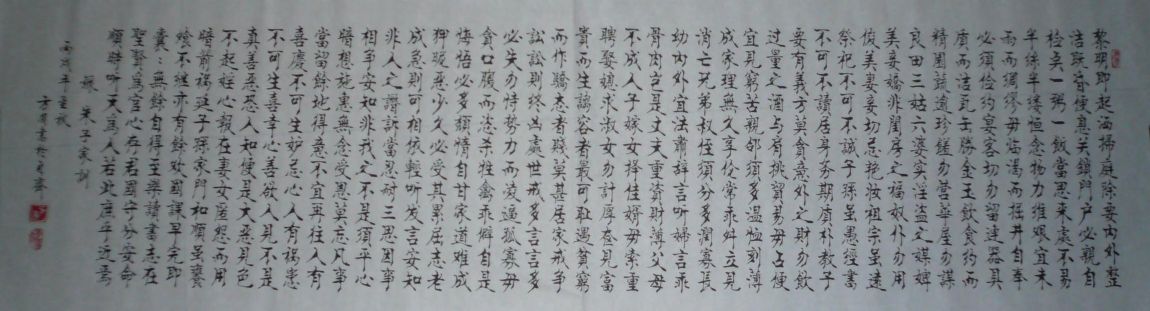 黎明即起洒掃庭除要內外整
潔既昏便息关鎖門戶必親自
檢点一粥一飯當思来處不易
半絲半縷恒念物力維艱宜未
雨而綢繆毋临渴而掘井自奉
必須儉約宴客切勿留連器具
質而洁瓦缶勝金玉飲食約而
精園蔬逾珍饈勿營華屋勿謀
良田三姑六婆实淫盜之媒婢
美妾嬌非閨房之福奴仆勿用
俊美妻妾切忌艳妝祖宗虽遠
祭祀不可不誠子孫虽愚經書
不可不讀居身务期質朴教子
要有義方莫貪意外之財勿飲
過量之酒与肩挑貿易毋占便
宜見窮苦親鄰須多温恤刻薄
成家理無久享倫常乖舛立見
消亡兄弟叔侄須分多潤寡長
幼内外宜法肅辞言听婦言乖
骨肉豈是丈夫重資財薄父母
不成人子嫁女擇佳婿毋索重
聘娶媳求淑女勿計厚奩見富
貴而生諂容者最可耻遇貧窮
而作驕态者賤莫甚居家戒爭
訟訟則終凶處世戒多言言多
必失勿恃勢力而凌逼孤寡毋
貪口腹而恣殺牲禽乖僻自是
悔悟必多頹惰自甘家道難成
狎暱惡少久必受其累屈志老
成急則可相依輕听发言安知
非人之譖訴當忍耐三思因事
相爭安知非我之不是須平心
暗想施惠無念受恩莫忘凡事
當留餘地得意不宜再往人有
喜慶不可生妒忌心人有禍患
不可生喜幸心善欲人見不是
真善惡恐人知便是大惡見色
不起婬心報在妻女匿怨而用
暗箭禍延子孫家門和順虽饔
飧不继亦有餘欢國課早完即
囊橐無餘自得至樂讀書志在
聖賢為官心存君國守分安命
順時听天為人若此庶乎近焉
錄朱子家訓
丙戌年重秋